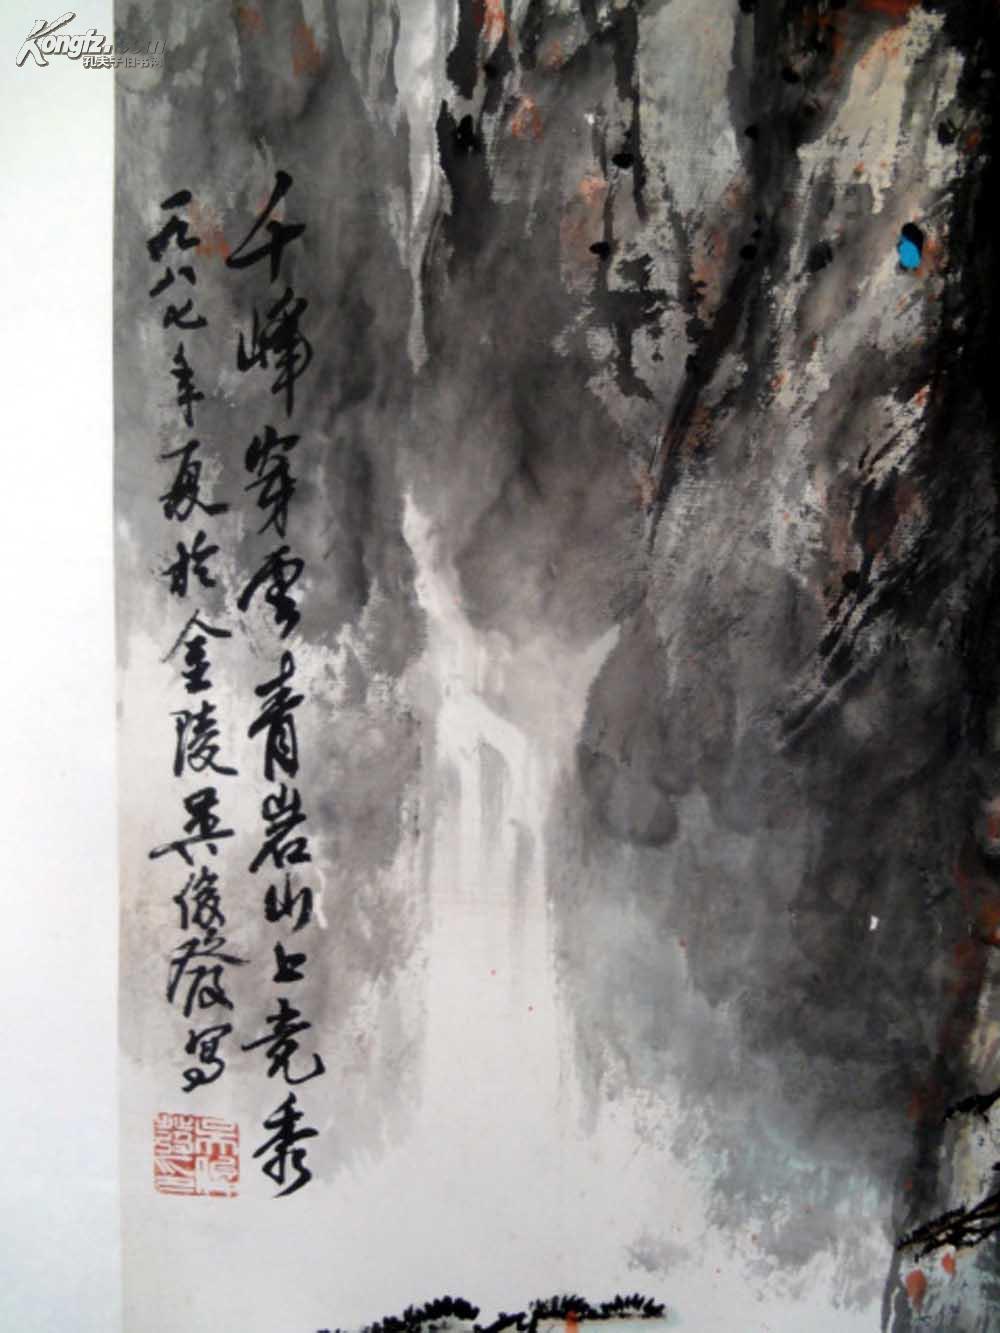 Kongfz.com
孔夫子旧书网
千峰穿雲青岩山上竞秀
一九八七年夏於金陵吴俊發写